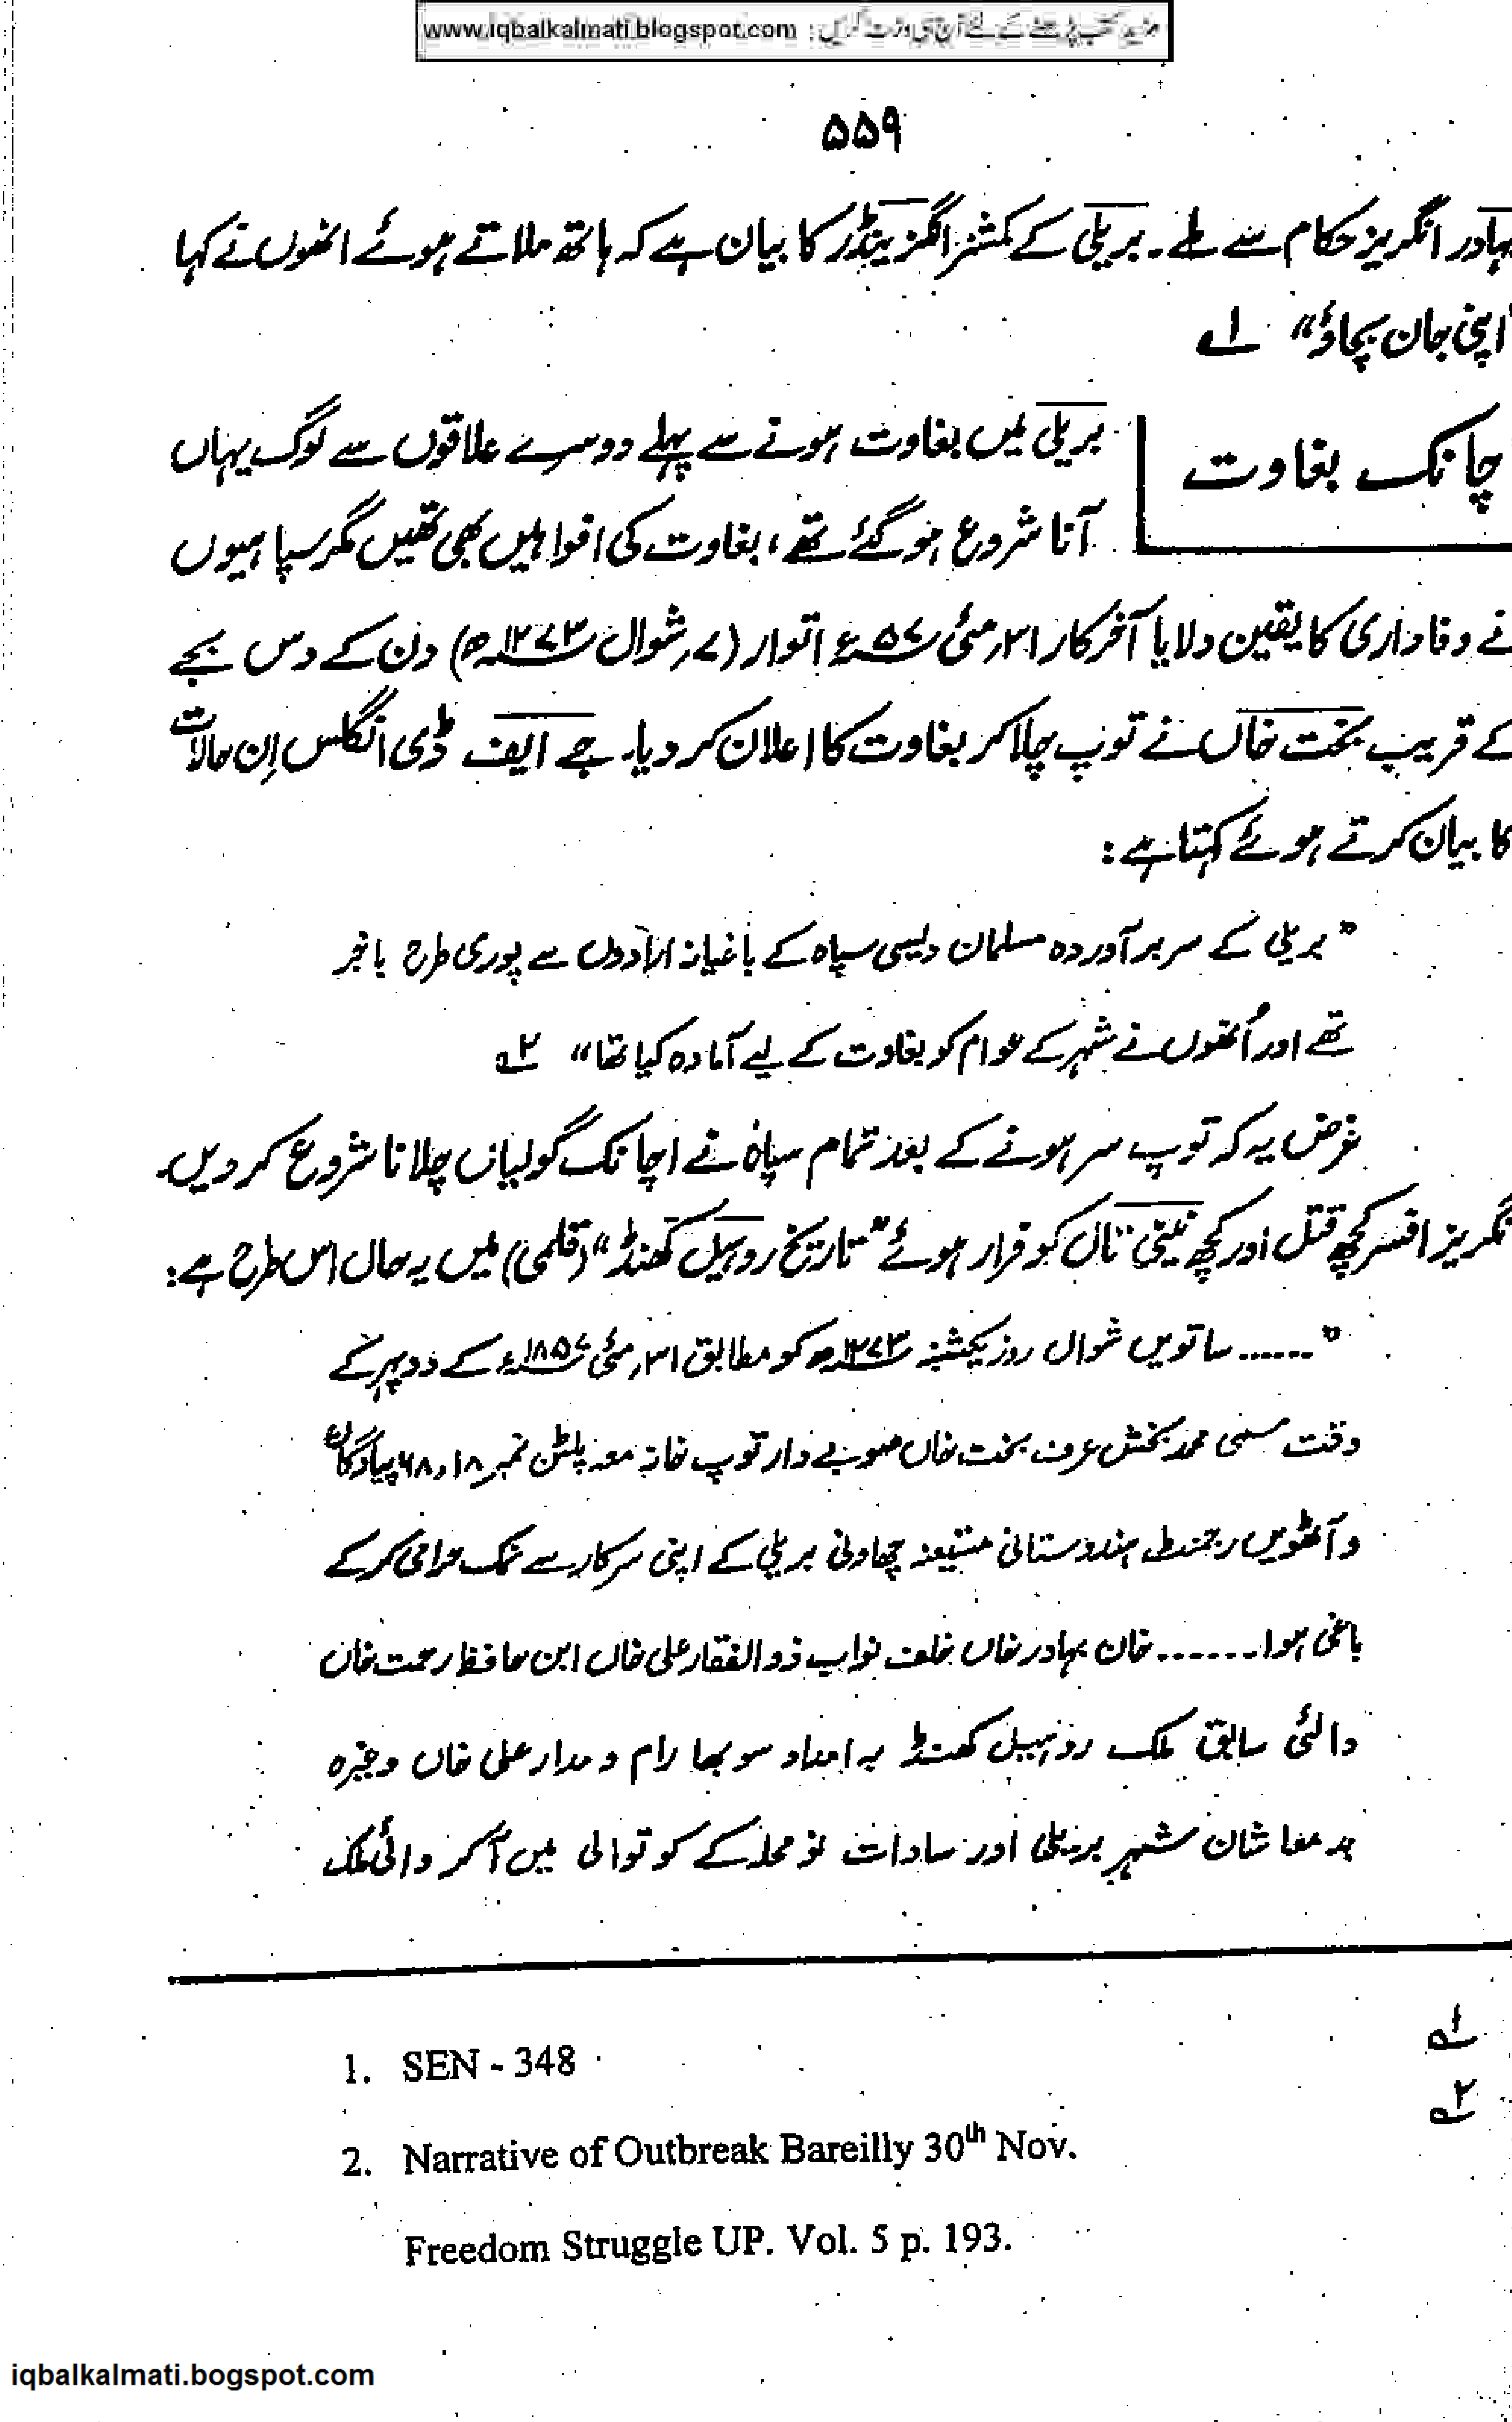 www.iqbalkalmati.blogspot.com : مزید کتب پڑھنے کے لئے آج ہی وزٹ کریں
۵۵۹
بہادر انگریز حکام سے ملے۔ بریلی کے کمشنر الگزینڈر کا بیان ہے کہ ہاتھ ملاتے ہوئے انھوں نے کہا
اپنی جان بچاؤ" ۱؎
چانک بغاوت
بریلی میں بغاوت ہونے سے پہلے دوسرے علاقوں سے لوگ یہاں
آنا شروع ہو گئے تھے، بغاوت کی افواہیں بھی تھیں مگر سپاہیوں
نے وفاداری کا یقین دلایا آخر کار ۳۱؍مئی ۵۷ء اتوار (۷؍شوال ۱۲۷۳ھ) دن کے دس بجے
کے قریب بخت خاں نے توپ چلا کر بغاوت کا اعلان کر دیا۔ جے ایف ڈی انگلس اِن حالات
کا بیان کرتے ہوئے کہتا ہے:
"بریلی کے سربر آوردہ مسلمان دیسی سپاہ کے باغیانہ ارادوں سے پوری طرح باخبر
تھے اور اُنھوں نے شہر کے عوام کو بغاوت کے لیے آمادہ کیا تھا" ۲؎
غرض یہ کہ توپ سر ہونے کے بعد تمام سپاہ نے اچانک گولیاں چلانا شروع کر دیں۔
نگریز افسر کچھ قتل اور کچھ نینی تال کو فرار ہوئے "تاریخ روہیل کھنڈ" (قلمی) میں یہ حال اس طرح ہے:
"...... ساتویں شوال روز یکشنبہ ۱۲۷۳ھ کو مطابق ۳۱؍مئی ۱۸۵۷ء کے دوپہر کے
وقت مسمی محمد بخش عرف بخت خاں صوبے دار توپ خانہ معہ پلٹن نمبر ۱۸، ۶۸ پیادگان
و آٹھویں رجمنٹ ہندوستانی متیعنہ چھاونی بریلی کے اپنی سرکار سے نمک حرامی کر کے
باغی ہوا....... خان بہادر خاں خلف نواب ذوالفقار علی خاں ابن حافظ رحمت خاں
والئی سابق ملک روہیل کھنڈ بہ امداد سوبھا رام و مدار علی خاں وغیرہ
بدمعاشان شہر بریلی اور سادات نو محلہ کے کوتوالی میں آکر والئی ملک
۱؎
1. SEN - 348
۲؎
2. Narrative of Outbreak Bareilly 30th Nov.
Freedom Struggle UP. Vol. 5 p. 193.
iqbalkalmati.bogspot.com